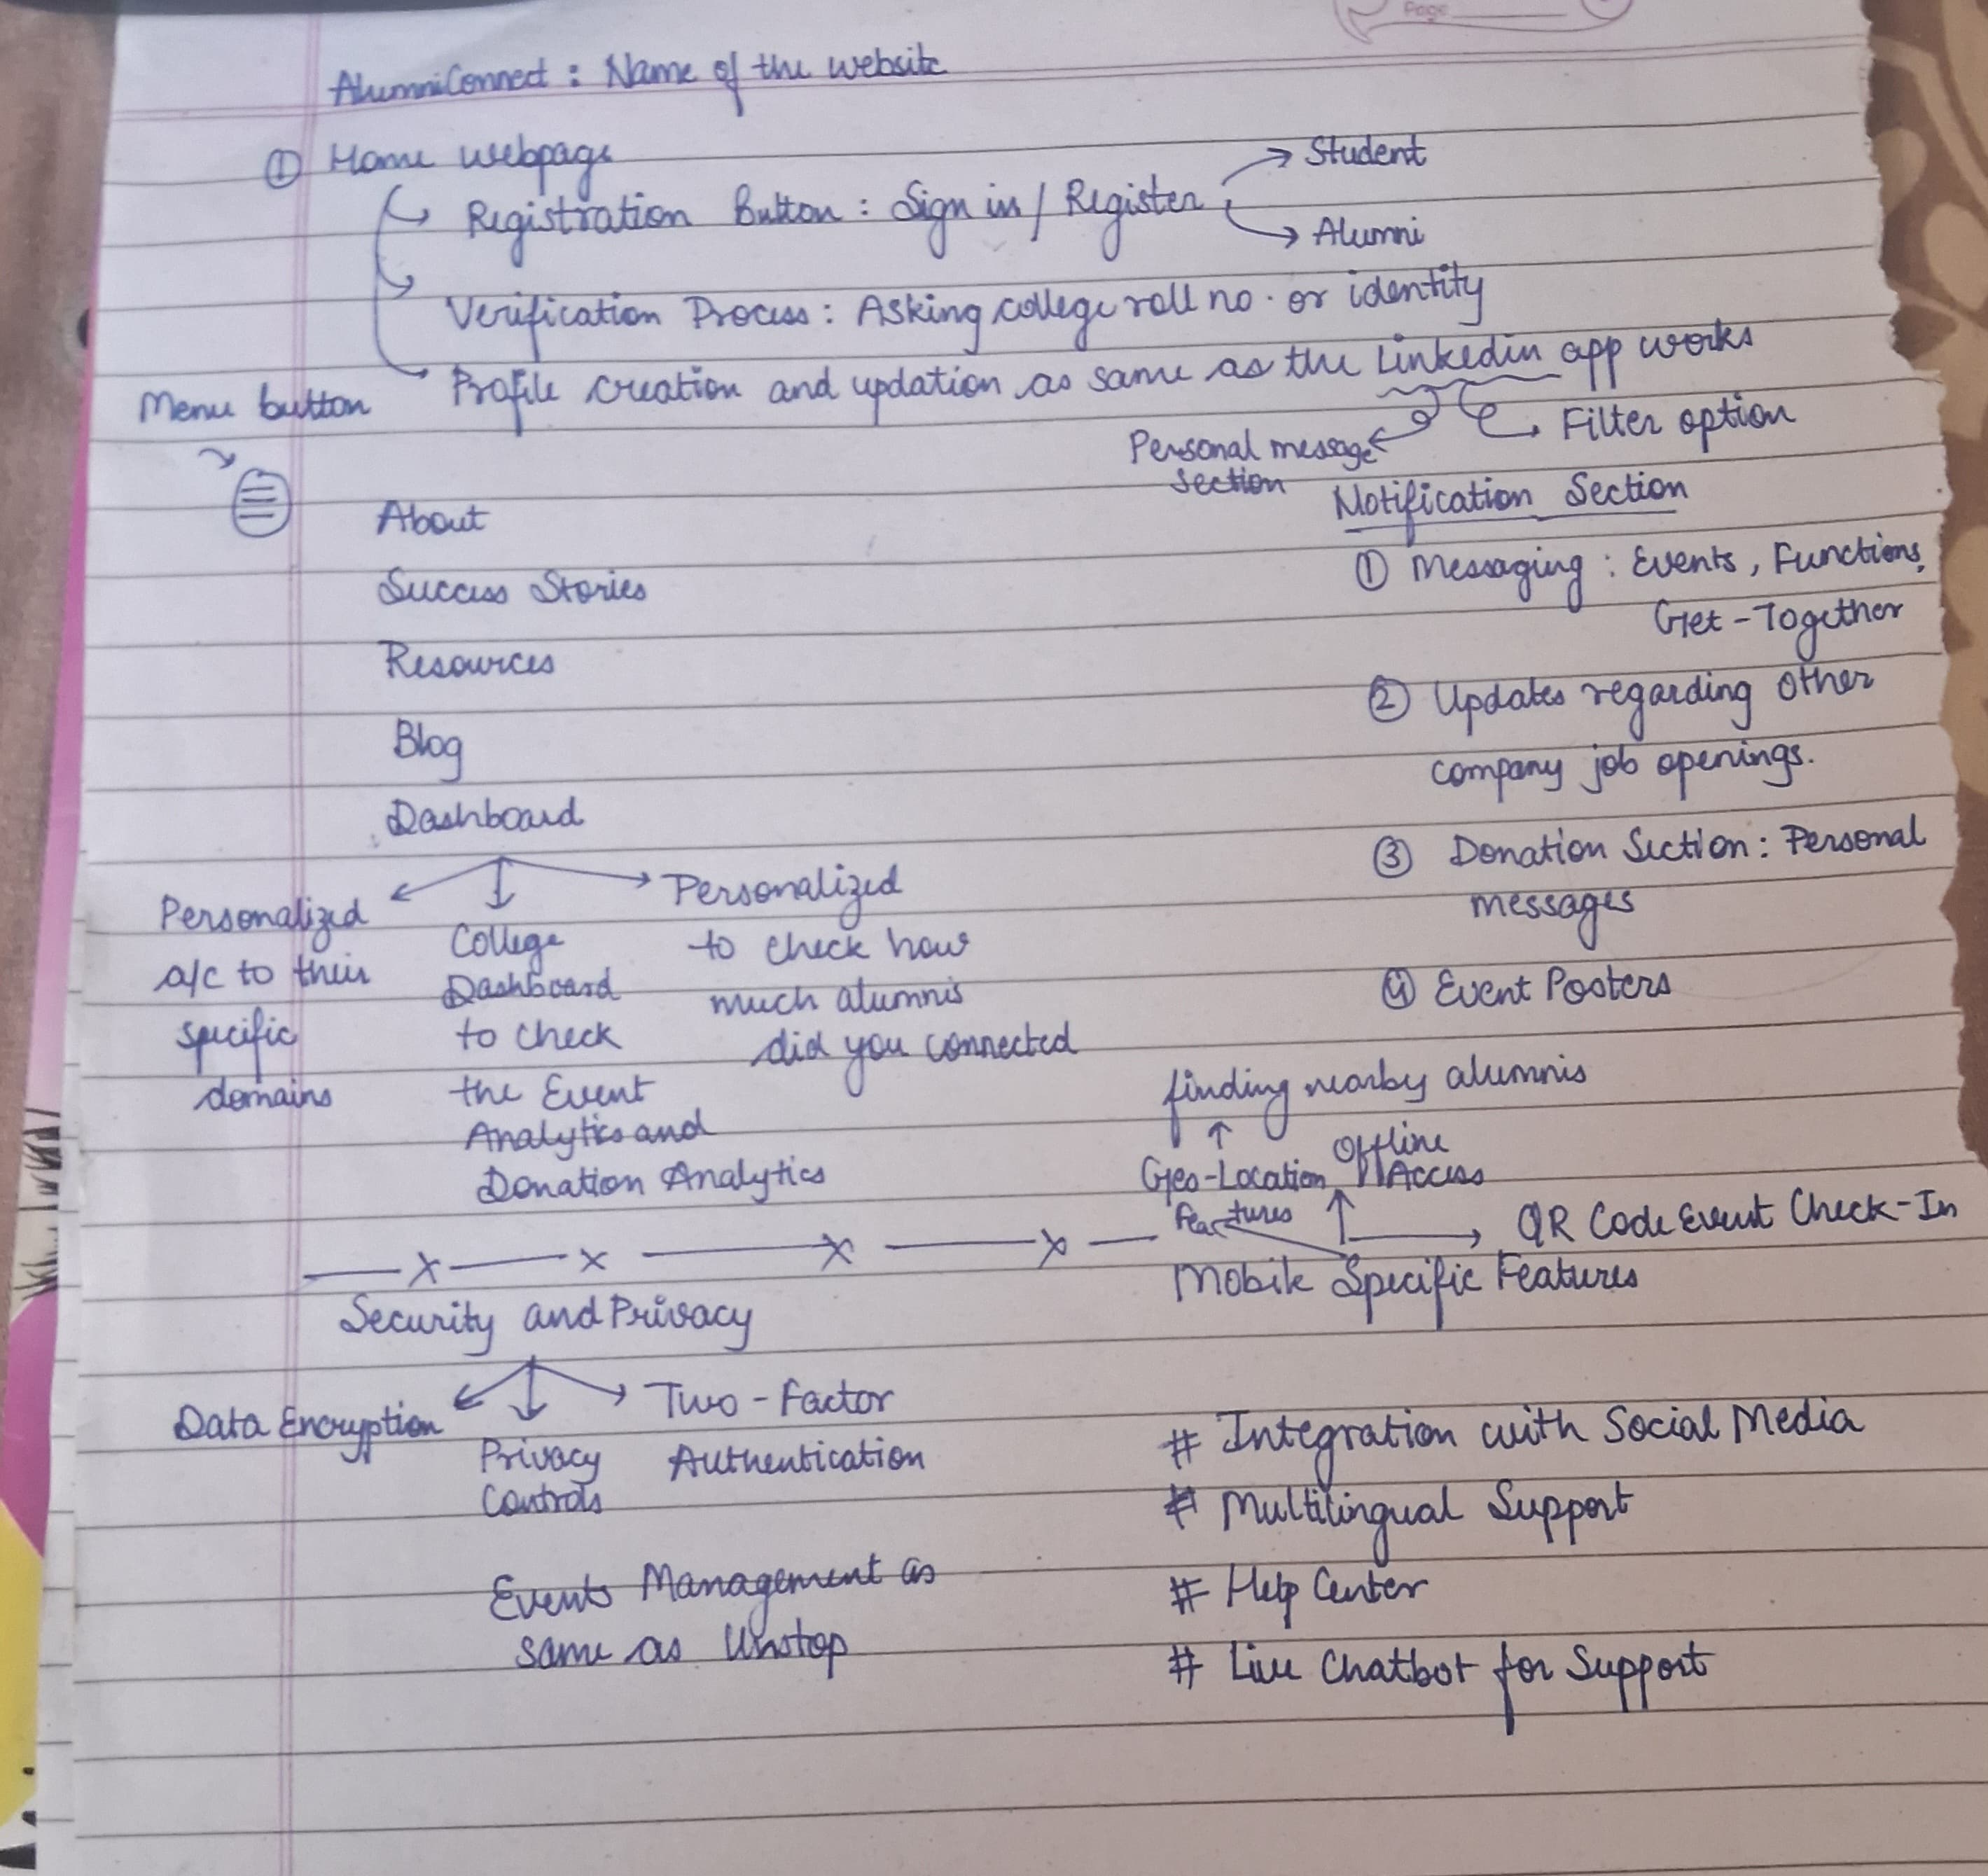 Page
AlumniConnect : Name of the website
① Home webpage
Registration Button : Sign in / Register
Student
Alumni
Verification Process : Asking college roll no. or identity
Profile creation and updation as same as the Linkedin app works
Personal message
section
Filter option
Menu button
About
Success Stories
Resources
Blog
Dashboard
Personalized
a/c to their
specific
domains
College
Dashboard
to check
the Event
Analytics and
Donation Analytics
Personalized
to check how
much alumnis
did you connected
Notification Section
① Messaging : Events, Functions,
Get-Together
② Updates regarding other
company job openings.
③ Donation Section : Personal
messages
④ Event Posters
finding nearby alumnis
Geo-Location
Features
Offline
Access
QR Code Event Check-In
Mobile Specific Features
Security and Privacy
Data Encryption
Privacy
Controls
Two-Factor
Authentication
Events Management as
same as Unstop
# Integration with Social Media
# Multilingual Support
# Help Center
# Live Chatbot for Support